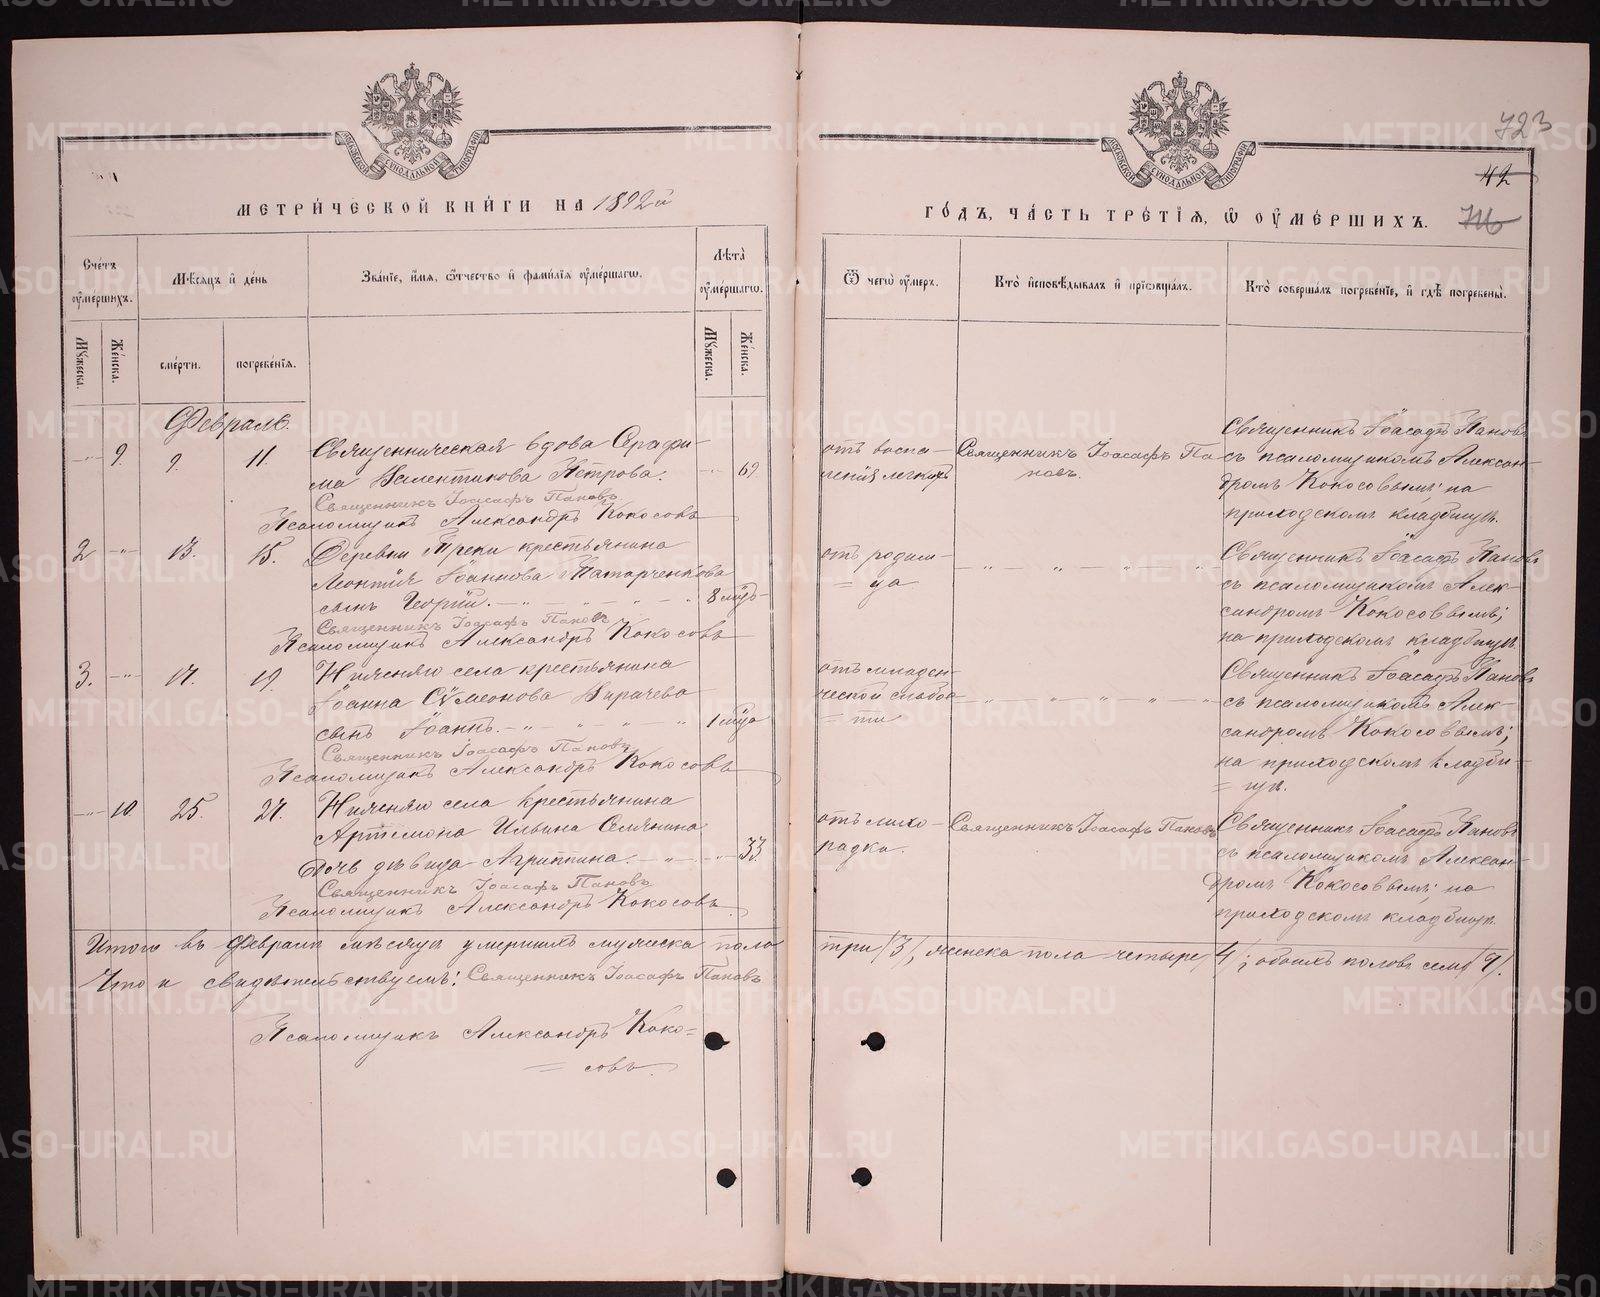 МЕТРИЧЕСКОЙ КНИГИ НА 1892й
Счетъ умершихъ.
Мѣсяцъ и день
Званіе, имя, отчество и фамилія умершаго.
Лѣта умершаго.
Мужеска.
Женска.
смерти.
погребенія.
Мужеска.
Женска.
Февраль.
9. 9. 11. Священническая вдова Серафи-
ма Валентинова Петрова. 69
Священникъ Іоасафъ Пановъ
Псаломщикъ Александръ Кокосовъ
2 13. 15. Деревни Треки крестьянина
Леонтія Іоаннова Татарченкова
сынъ Георгій. 8 мцд
Священникъ Іоасафъ Пановъ
Псаломщикъ Александръ Кокосовъ
3. 17. 19. Нижняго села крестьянина
Іоанна Сѵмеонова Кирачева
сынъ Іоаннъ. 1 мцд
Священникъ Іоасафъ Пановъ
Псаломщикъ Александръ Кокосовъ
10. 25. 27. Нижняго села крестьянина
Артемона Ильина Селянина
дочь дѣвица Агриппина. 33
Священникъ Іоасафъ Пановъ
Псаломщикъ Александръ Кокосовъ
Итого въ Февралѣ мѣсяцѣ умершихъ мужеска пола
Что и свидѣтельствуемъ: Священникъ Іоасафъ Пановъ
Псаломщикъ Александръ Коко=
= совъ.
723
42
716
ГОДЪ, ЧАСТЬ ТРЕТІЯ, Ѿ УМЕРШИХЪ.
Ѿ чего умеръ.
Кто исповѣдывалъ и пріобщалъ.
Кто совершалъ погребеніе, и гдѣ погребены.
отъ воспа-
ленія легкихъ
Священникъ Іоасафъ Па-
новъ.
Священникъ Іоасафъ Пановъ
съ псаломщикомъ Алексан-
дромъ Кокосовымъ; на
приходскомъ кладбищѣ.
отъ родим-
= ца
Священникъ Іоасафъ Пановъ
съ псаломщикомъ Алек-
сандромъ Кокосовымъ;
на приходскомъ кладбищѣ.
отъ младен-
ческой слабос-
= ти
Священникъ Іоасафъ Пановъ
съ псаломщикомъ Алек-
сандромъ Кокосовымъ;
на приходскомъ кладби-
= щѣ.
отъ лихо-
радки.
Священникъ Іоасафъ Пановъ
Священникъ Іоасафъ Пановъ
съ псаломщикомъ Алексан-
дромъ Кокосовымъ; на
приходскомъ кладбищѣ
три /3/, женска пола четыре /4/; обоихъ половъ семь /7/.
METRIKI.GASO-URAL.RU